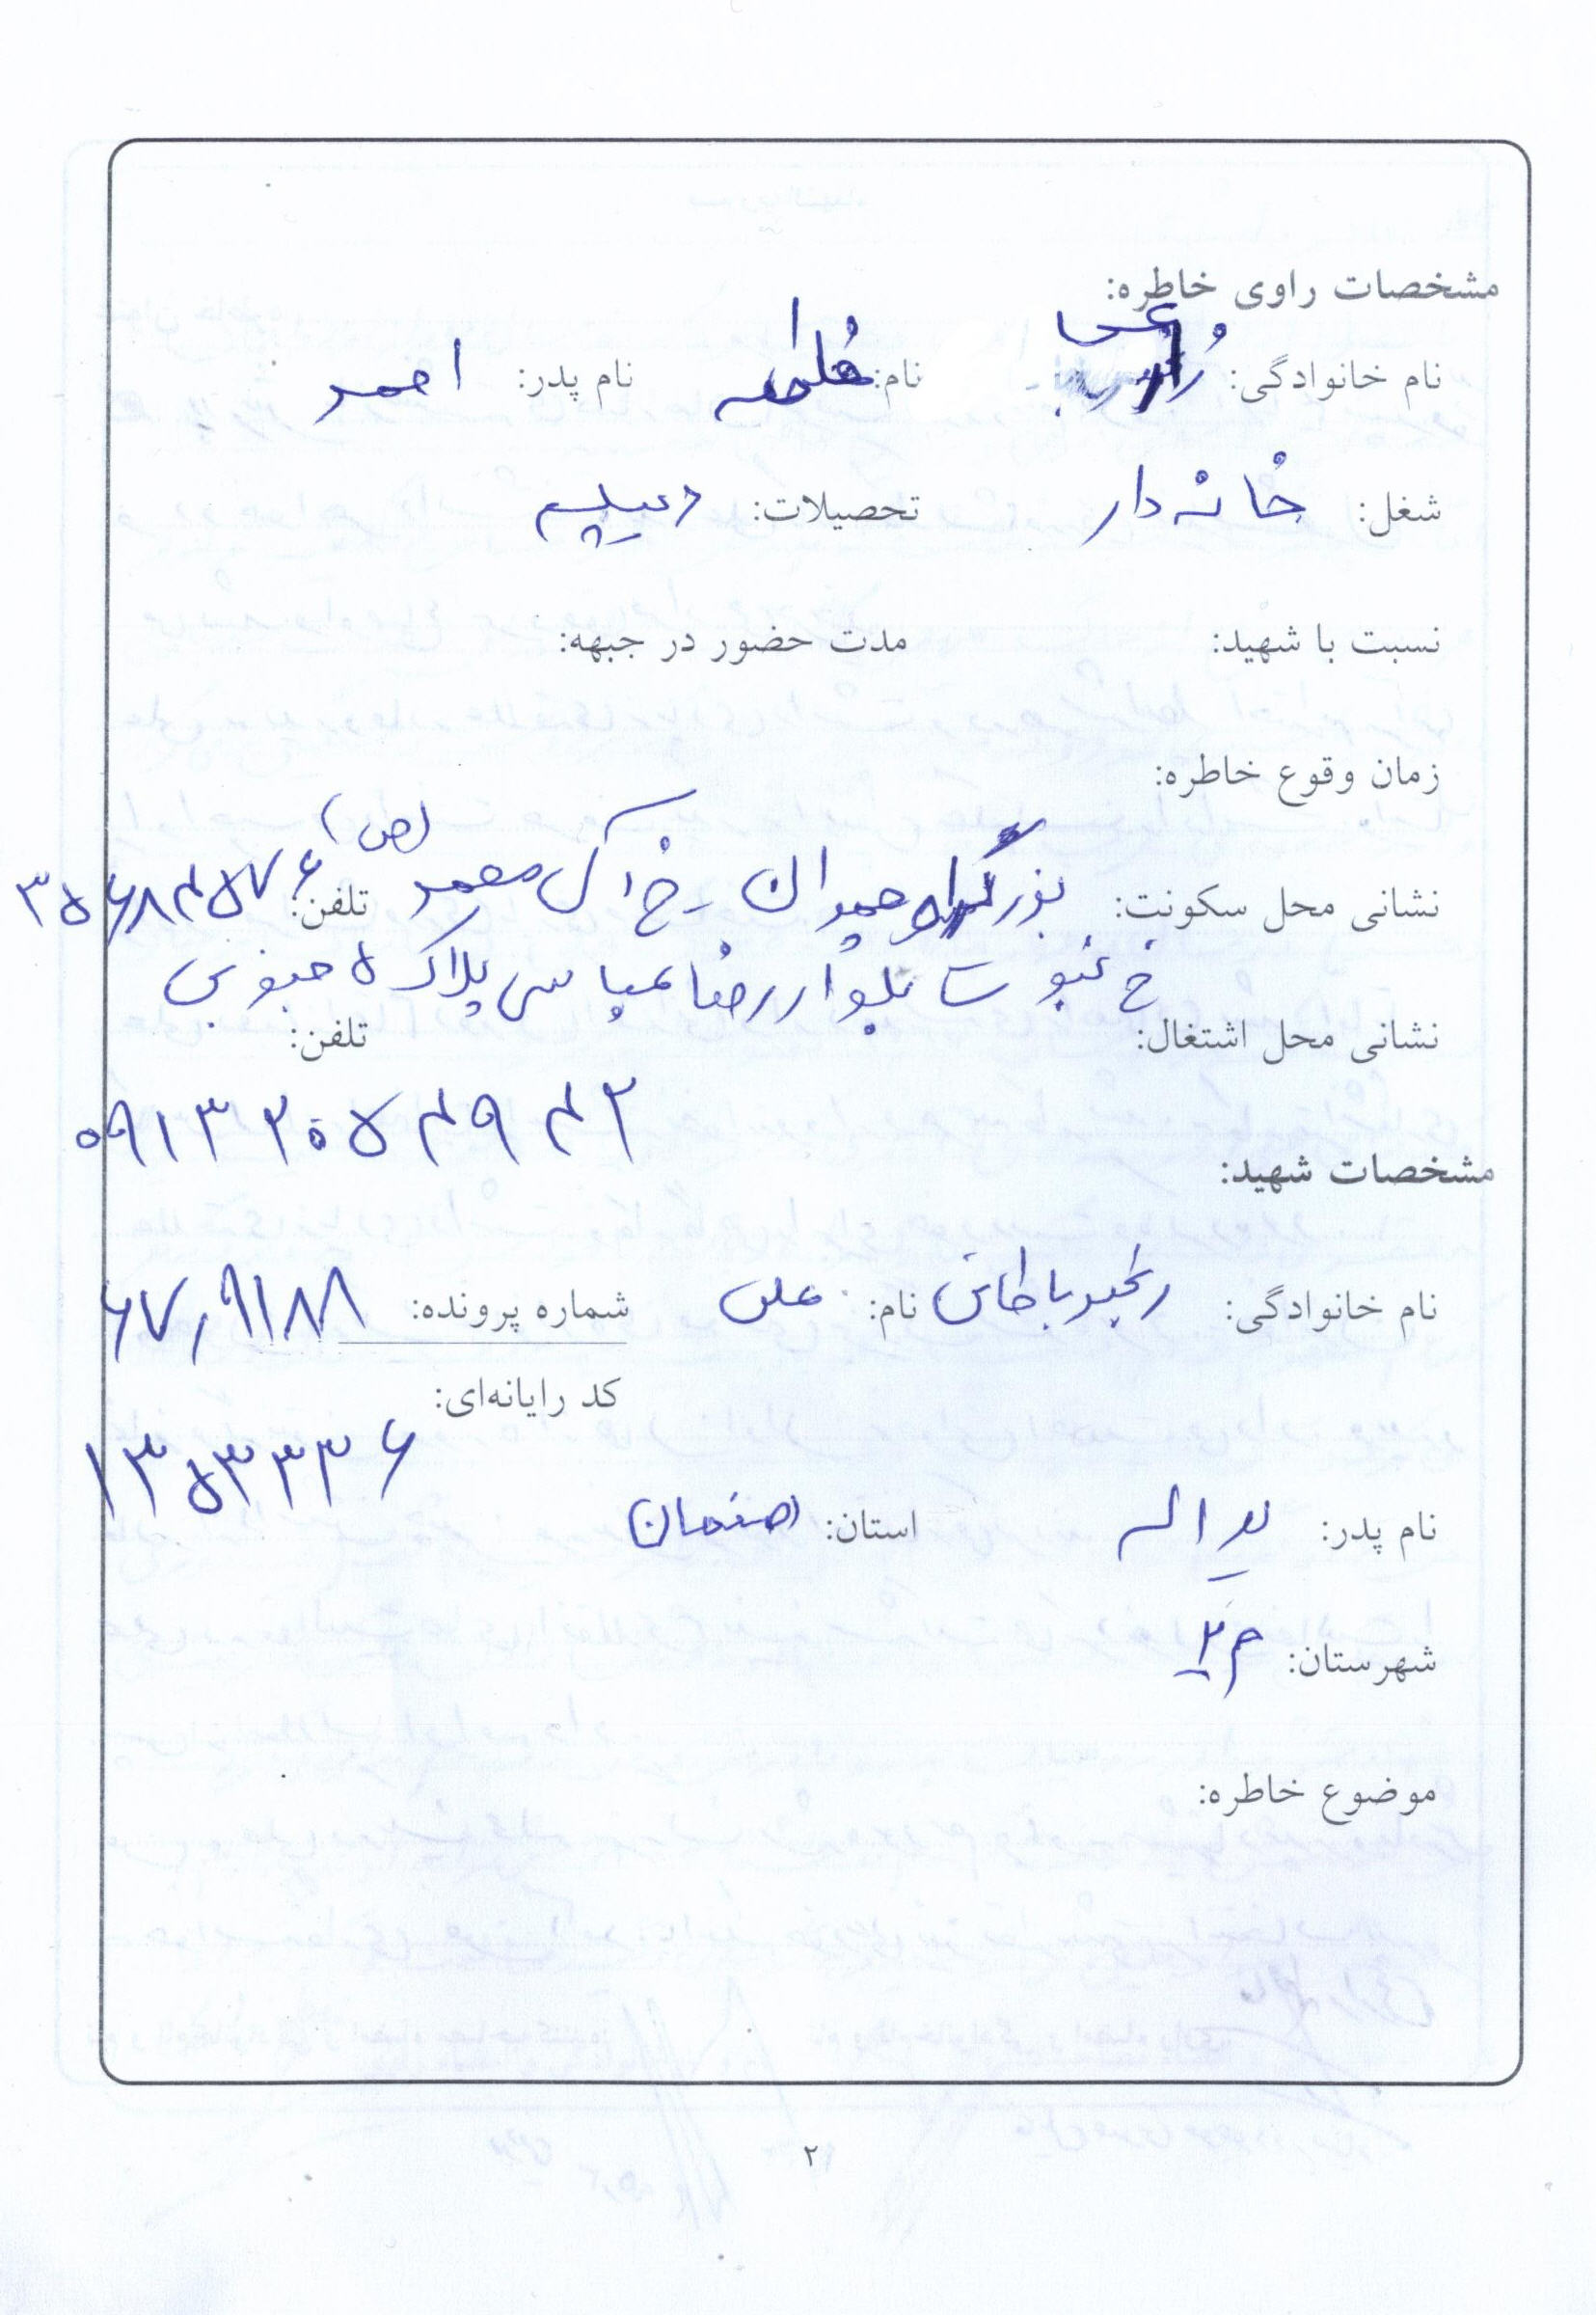 مشخصات راوی خاطره:
نام خانوادگی: زارعی نام: فاطمه نام پدر: احمد
شغل: خانه دار تحصیلات: دیپلم
نسبت با شهید: مدت حضور در جبهه:
زمان وقوع خاطره:
نشانی محل سکونت: بزرگراه چمران - خ آل محمد (ص) تلفن: ۳۵۶۸۴۵۷۶
خ نبوت بلوار رضا عباسی پلاک ۵ جنوبی
نشانی محل اشتغال: تلفن:
۰۹۱۳۲۰۵۴۹۴۲
مشخصات شهید:
نام خانوادگی: رنجبر باطانی نام: علی شماره پرونده: ۶۷٫۹۱۸۸
کد رایانه‌ای:
۱۳۵۳۳۳۶
نام پدر: یداله استان: اصفهان
شهرستان: م ۲
موضوع خاطره:
۲